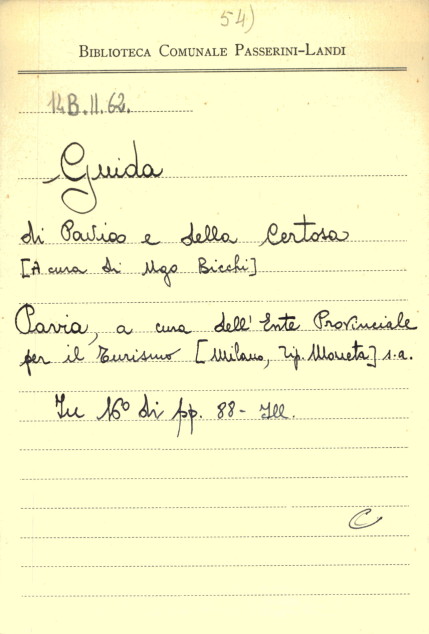 54)
BIBLIOTECA COMUNALE PASSERINI-LANDI
14B.II.62.
Guida
di Pavia e della Certosa
[A cura di Ugo Bicchi]
Pavia, a cura dell'Ente Provinciale
per il Turismo [Milano, Tip. Moneta] s.a.
In 16º di pp. 88 - Ill.
C